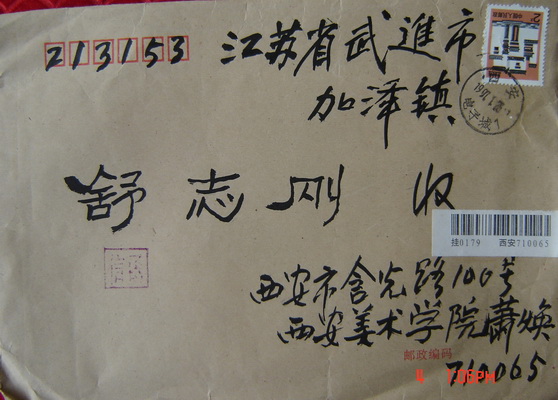 213153 江苏省武進市
加泽镇
舒志刚 收
挂0179 西安710065
西安市含光路100号
西安美术学院蕭焕
邮政编码
710065